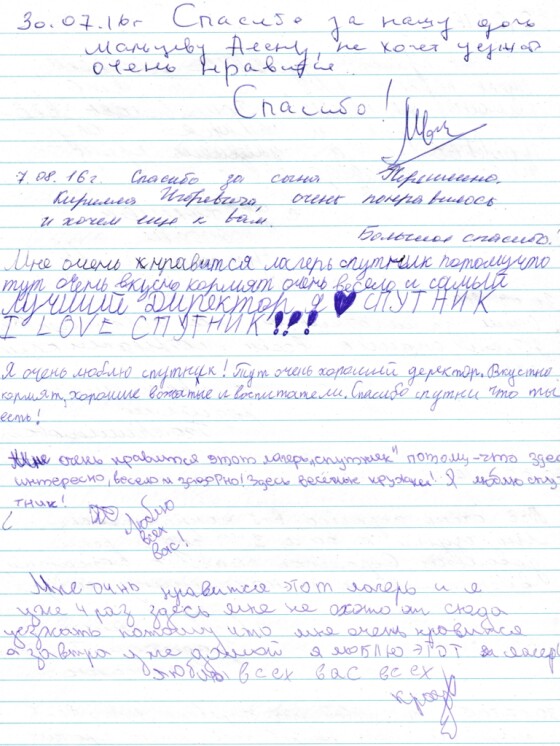 30.07.16г Спасибо за нашу дочь
Мальцеву Алену, не хочет уезжат
очень нравится
Спасибо!
7.08.16г. Спасибо за сына
Кирилла Игоревича, очень понравилось
и хочет еще к вам.
Большое спасибо!
Мне очень нравится лагерь спутник потомучто
тут очень вкусно кормят очень весело и самый
лучший директор я ♥ СПУТНИК
I LOVE СПУТНИК!!!
Я очень люблю спутник! Тут очень хороший деректор. Вкустно
кормят, хорошие вожатые и воспитатели. Спасибо спутник что ты
есть!
Мне очень нравится этот лагерь „спутник" потому-что здес
интересно, весело и здорно! Здесь весёлые кружки! Я люблю спу-
тник!
Люблю
всех
вас!
Мне очинь нравится этот лагерь и я
уже 4 раз здесь мне не охото от сюда
уезжать потому что мне очень нравится
а завтра уже домой я люблю этот лагерь
люблю всех вас всех